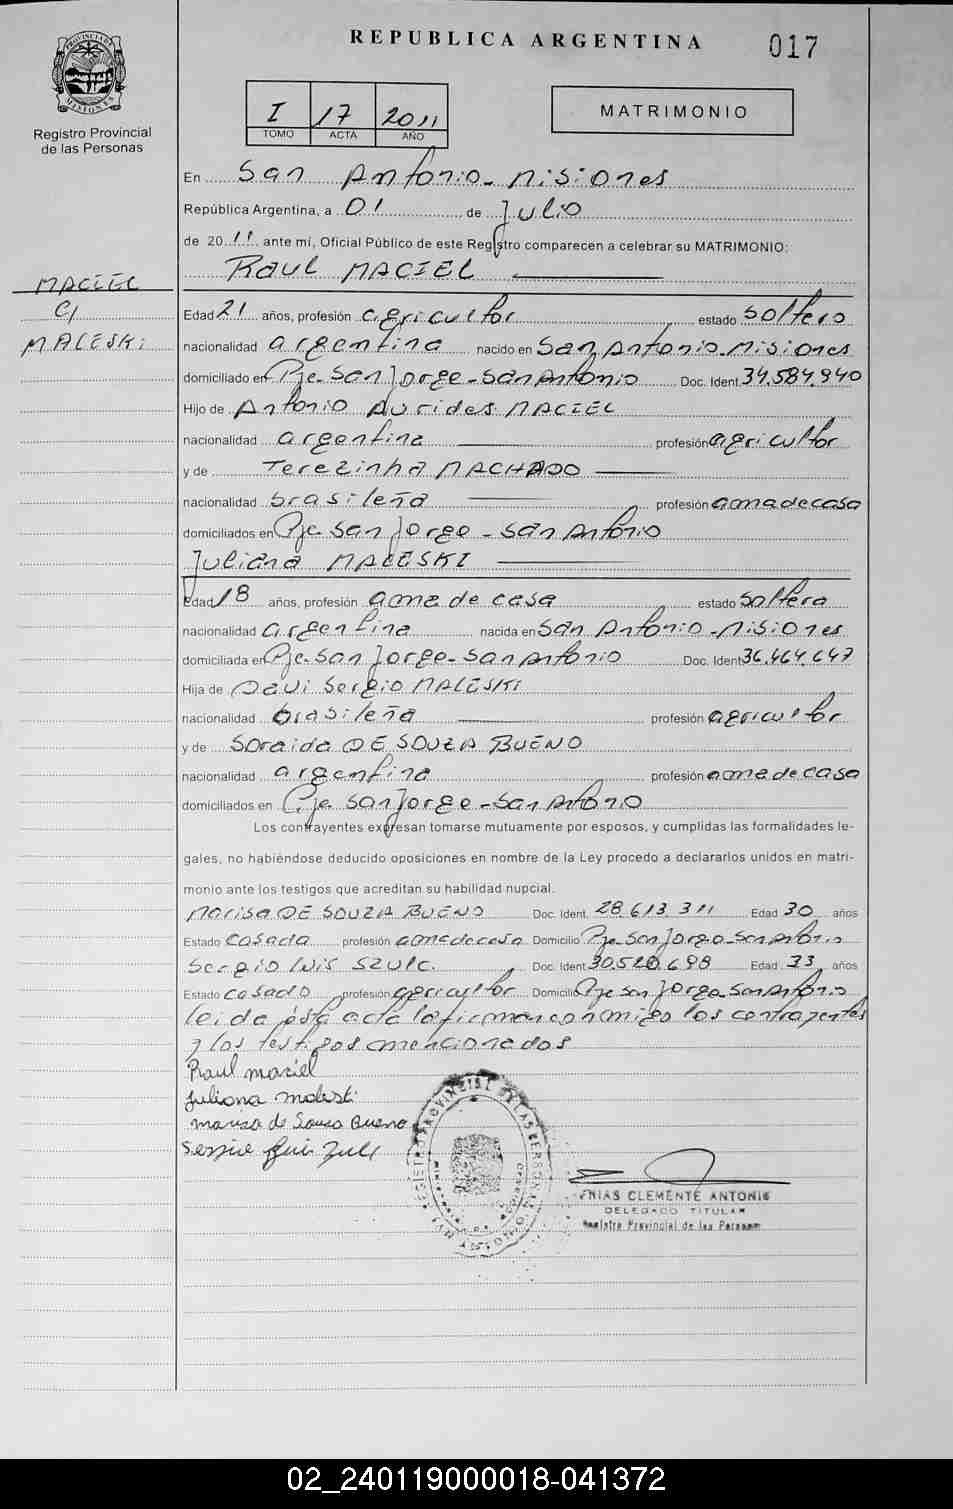 REPUBLICA ARGENTINA
017
PROVINCIA DE MISIONES
Registro Provincial
de las Personas
I 17 2011
TOMO ACTA AÑO
MATRIMONIO
En San Antonio - Misiones
República Argentina, a 01 de Julio
de 2011 ante mí, Oficial Público de este Registro comparecen a celebrar su MATRIMONIO:
Raul MACIEL
MACIEL
C/
MALESKI
Edad 21 años, profesión agricultor estado soltero
nacionalidad argentina nacido en San Antonio-Misiones
domiciliado en Pje. San Jorge-San Antonio Doc. Ident. 34.584.940
Hijo de Antonio Aurides MACIEL
nacionalidad argentina profesión agricultor
y de Terezinha MACHADO
nacionalidad brasileña profesión ama de casa
domiciliados en Pje San Jorge - San Antonio
Juliana MALESKI
Edad 18 años, profesión ama de casa estado soltera
nacionalidad argentina nacida en San Antonio-Misiones
domiciliada en Pje. San Jorge-San Antonio Doc. Ident 36.464.647
Hija de Davi Sergio MALESKI
nacionalidad brasileña profesión agricultor
y de Soraida DE SOUZA BUENO
nacionalidad argentina profesión ama de casa
domiciliados en Pje San Jorge-San Antonio
Los contrayentes expresan tomarse mutuamente por esposos, y cumplidas las formalidades le-
gales, no habiéndose deducido oposiciones en nombre de la Ley procedo a declararlos unidos en matri-
monio ante los testigos que acreditan su habilidad nupcial.
Marisa DE SOUZA BUENO Doc. Ident. 28.613.311 Edad 30 años
Estado casada profesión ama de casa Domicilio Pje-San Jorge-San Antonio
Sergio Luis SZULC. Doc. Ident 30.520.698 Edad 33 años
Estado casado profesión agricultor Domicilio Pje San Jorge-San Antonio
leida ésta acta la firman conmigo los contrayentes
y los testigos mencionados
Raul Maciel
Juliana Maleski
Marisa de Souza Bueno
CLEMENTE ANTONIO
DELEGADO TITULAR
Registro Provincial de las Personas
02_240119000018-041372